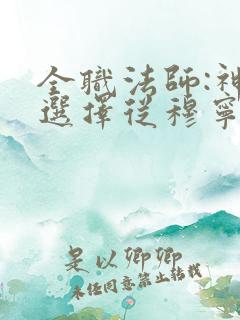 全職法師:神
選擇從穆寧
是以卿卿
未任同意禁止转载